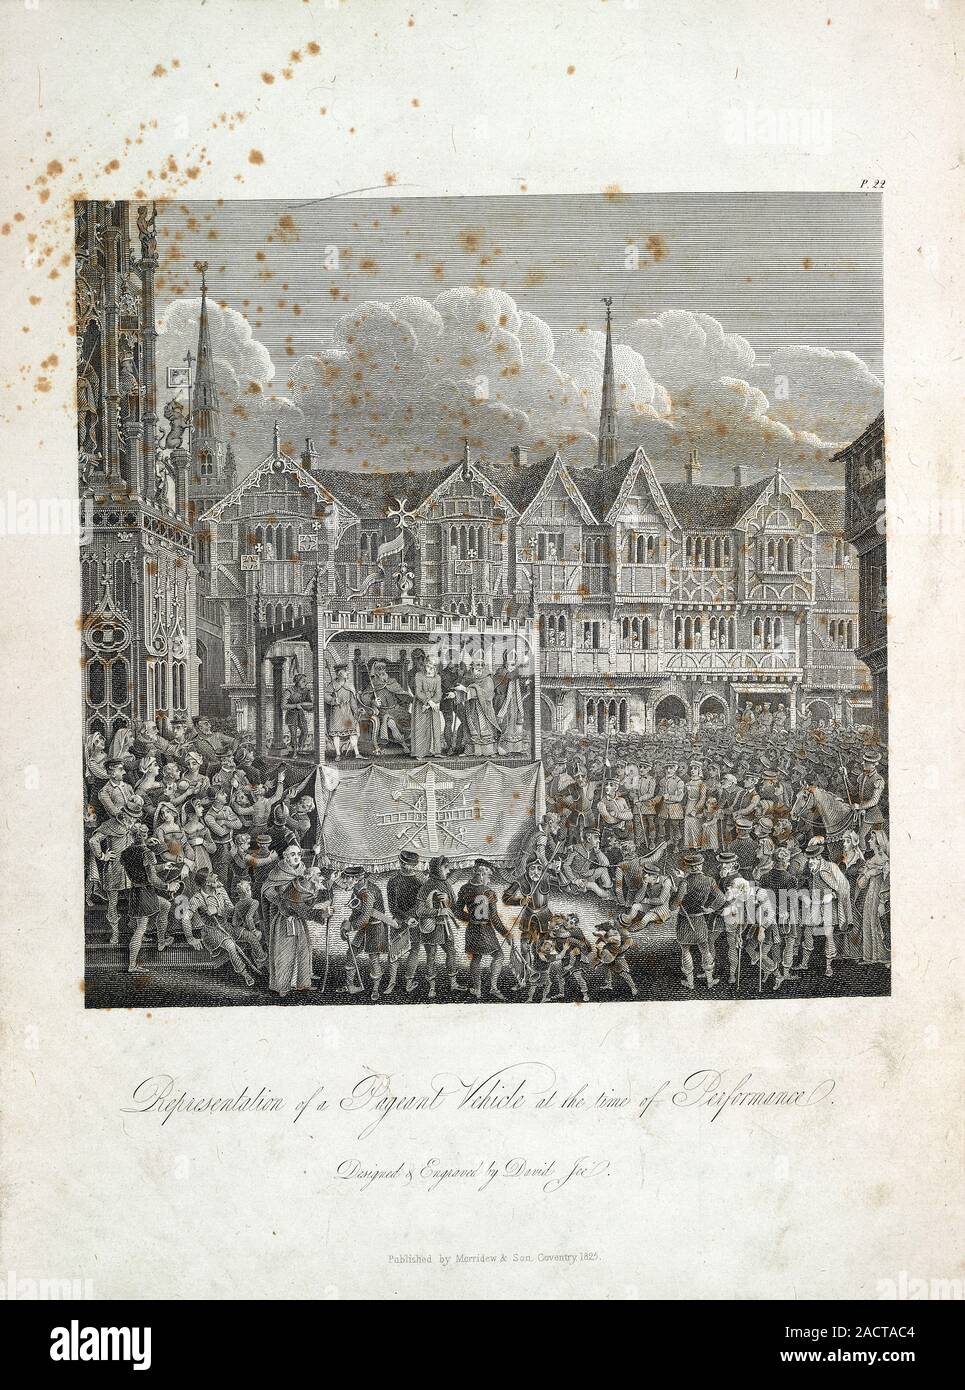 P. 22
Representation of a Pageant Vehicle at the time of Performance.
Designed & Engraved by David Jee.
Published by Merridew & Son, Coventry, 1825.
alamy
alamy
alamy
alamy
Image ID: 2ACTAC4
www.alamy.com